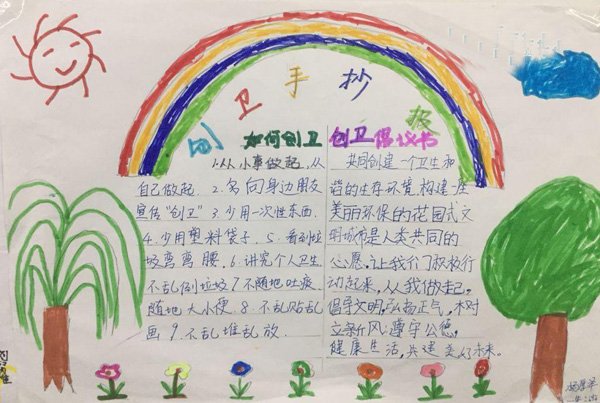 创卫手抄报
如何创卫
1.从小事做起,从
自己做起. 2.多向身边朋友
宣传“创卫” 3.少用一次性东西.
4.少用塑料袋子. 5.看到垃
圾弯弯腰. 6.讲究个人卫生
不乱倒垃圾 7.不随地吐痰
随地大小便. 8.不乱贴乱
画 9.不乱堆乱放.
创卫倡议书
共同创建一个卫生和
谐的生存环境,构建一座
美丽环保的花园式文
明城市是人类共同的
心愿.让我们积极行
动起来,从我做起.
倡导文明,弘扬正气,树
立新风.遵守公德,
健康生活,共建美好未来.